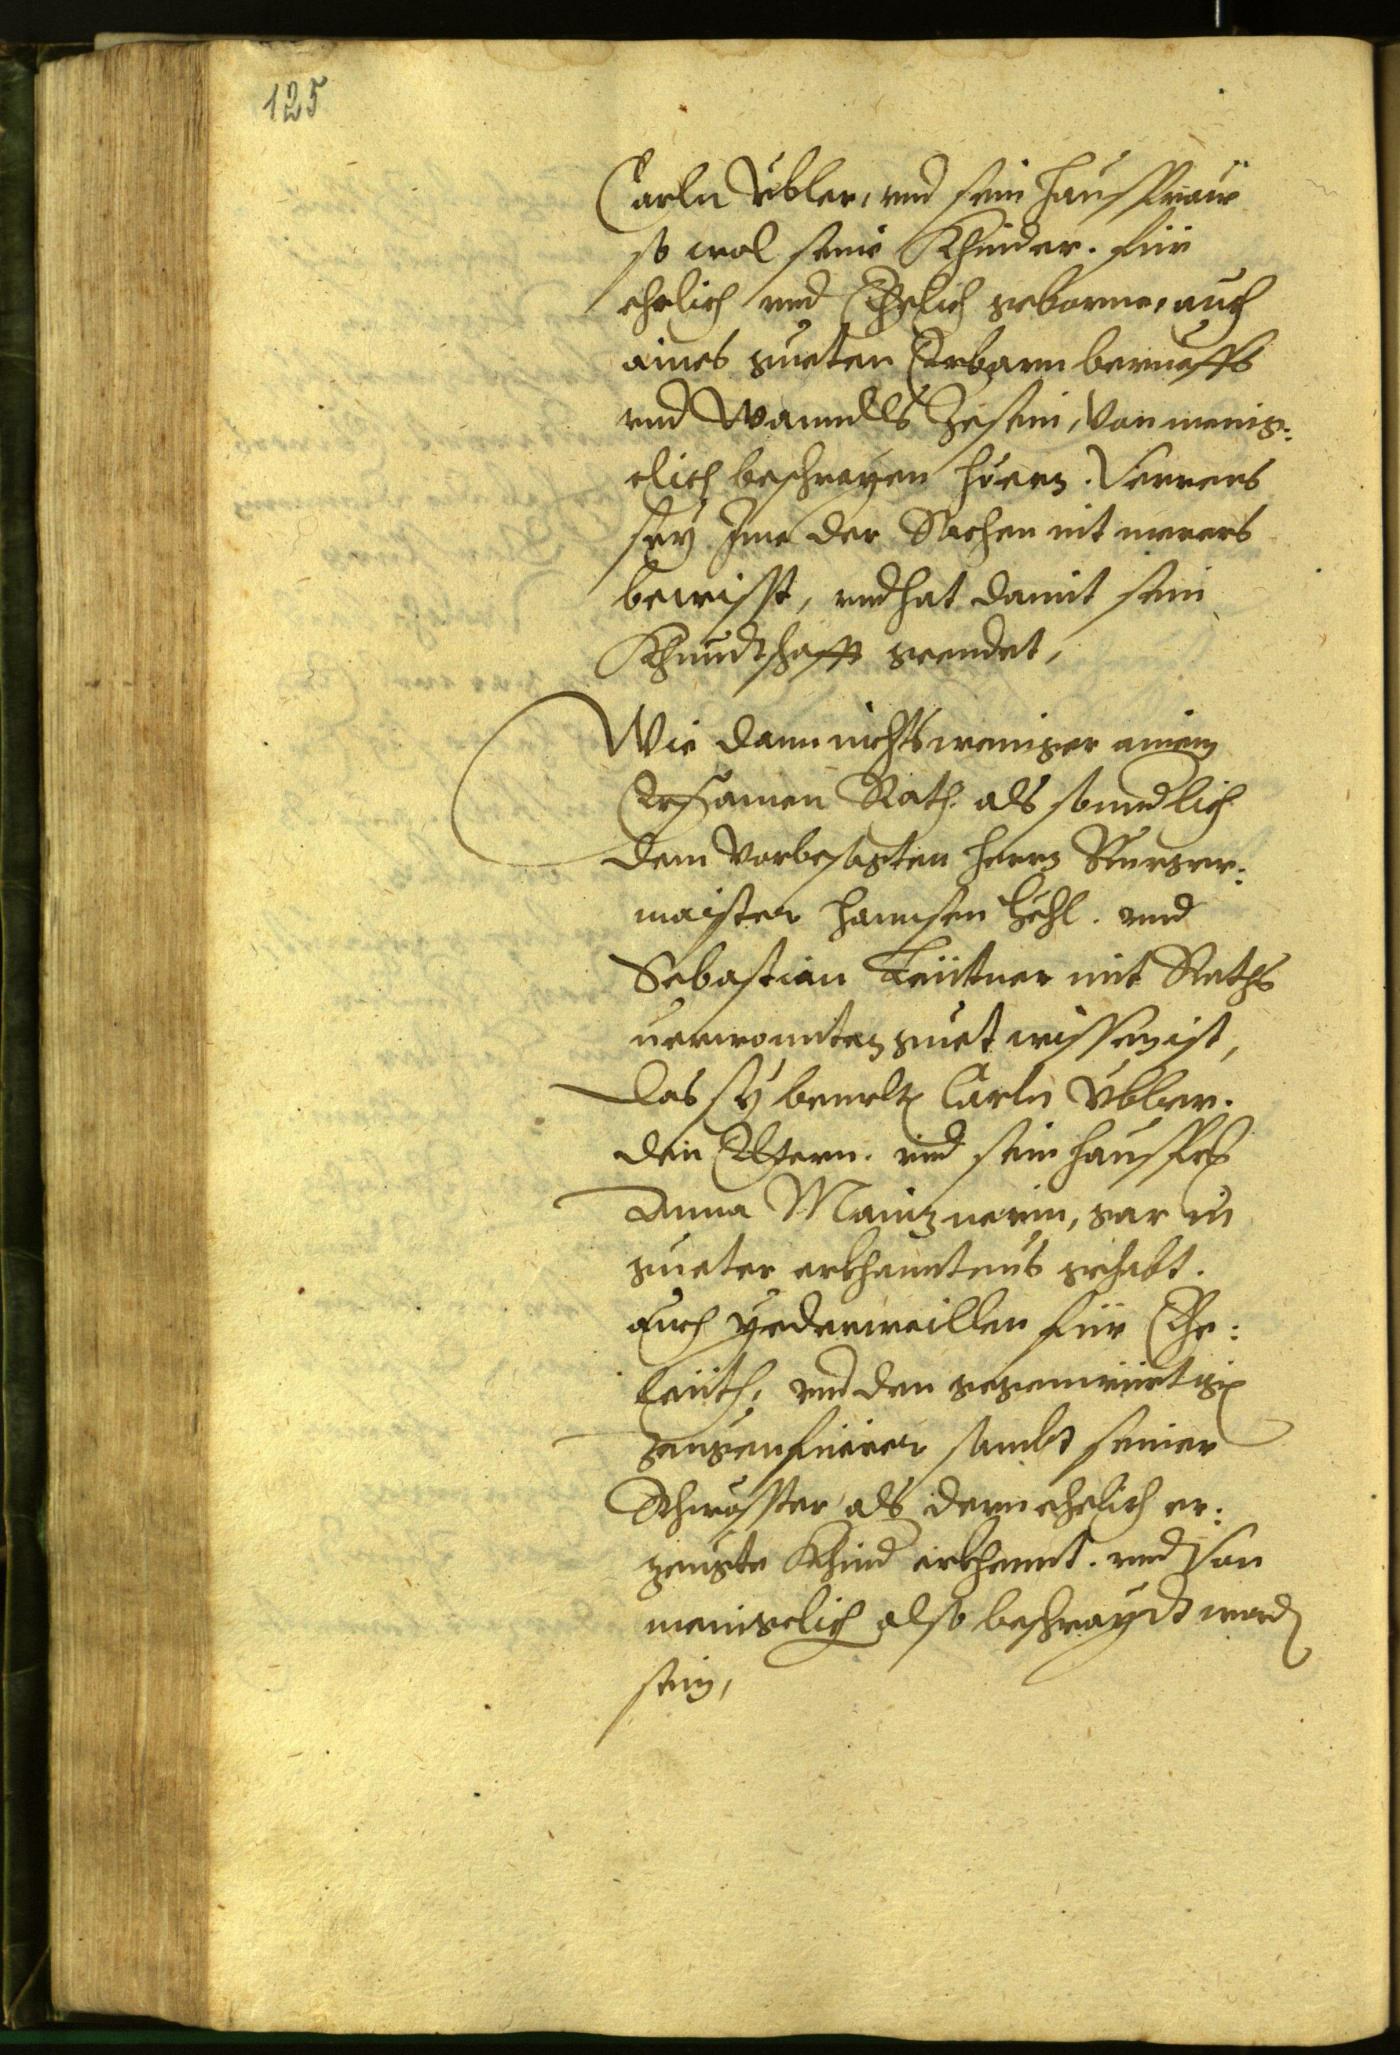 125
Carln Übler, vnd sein haussfraw
so wol seine Khinder. für
ehrlich vnd Ehelich geborne, auch
aines gueten Erbarn berueffs
vnd Wanndls zesein, von menig:
clich beschrayen hören. Verrers
sey Ime der Sachen nit merers
bewisst, vnd hat damit sein
Khundtschafft geendet,
Wie dann nichts weniger ainem
Ersamen Rath. als sonndlich
dem vorbesagten herrn Burger:
maister hannsen . vnd
Sebastian mit Raths
verwonnten guet wissen ist,
das sy bemelten Carln Übler.
den Eltern. vnd sein haussfr
Anna Mainznerin, gar in
gueter erkhanntnus gehabt.
auch yederweillen für Ehe:
leüth, vnd den gegenwürtigen
zeugenfüerer sambt seiner
Schwösster als deren ehelich er:
zeugte Khind erkhennt. vnd von
menigclich also beschrayet worden
sein,